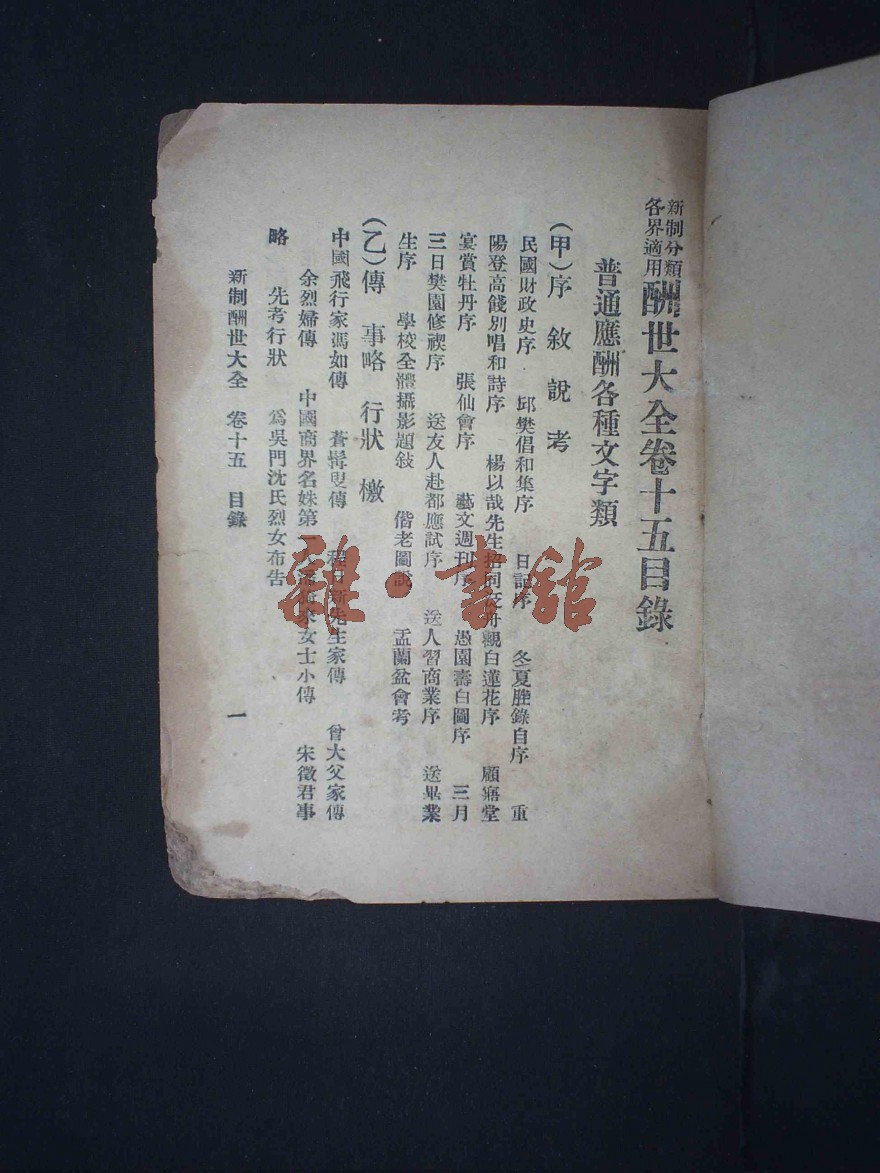 新制分類
各界適用
酬世大全卷十五目錄
普通應酬各種文字類
（甲）序 敘 說 考
民國財政史序 邱樊倡和集序 日記序 冬夏歷錄自序 重
陽登高餞別唱和詩序 楊以哉先生招同泛舟觀白蓮花序 顧寤堂
宴賞牡丹序 張仙會序 藝文週刊序 愚園壽白圖序 三月
三日樊園修禊序 送友人赴都應試序 送人習商業序 送畢業
生序 學校全體攝影題敍 偕老圖說 盂蘭盆會考
（乙）傳 事略 行狀 檄
中國飛行家馮如傳 蒼髯叟傳 程 新先生家傳 曾大父家傳
余烈婦傳 中國商界名姝第一 女士小傳 宋徵君事
略 先考行狀 爲吳門沈氏烈女布告
新制酬世大全 卷十五 目錄 一
雜·書館